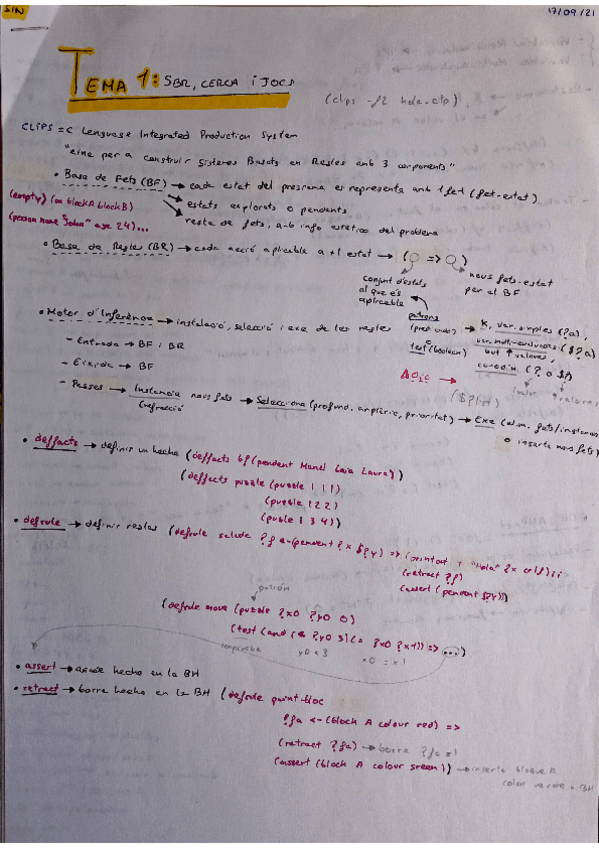 SIN
17/09/21
TEMA 1: SBR, CERCA i JOCS
(clips -f2 hola.clp)
CLIPS = C Lenguage Integrated Production System
"eine per a construir Sistemes Basats en Regles amb 3 components"
• Base de Fets (BF) → cada estat del programa es representa amb 1 fet (fet-estat)
→ estats explorats o pendents
(empty) (on blockA blockB)
→ resta de fets, amb info estàtica del problema
(person name "John" age 24)...
• Base de Regles (BR) → cada acció aplicable a +1 estat → (○ => ○)
conjunt d'estats al que és aplicable
nous fets-estat per al BF
• Motor d'Inferència → instalació, selecció i exe de les regles
patrons (pred. ordre) → K, var. simples (?a),
test (boolean)
var. multi-avaluades ($?a)
- Entrada → BF i BR
- Eixida → BF
- Passes → Instancia nous fets → Selecciona (profund. amplària, prioritat) → Exe (elim. fets/instancien
(refracció)
o inserta nous fets)
($?list)
• deffacts → definir un hecho (deffacts bf (pendent Manel Laia Laura))
(deffacts puzzle (puzzle 1 1 1)
(puzzle 1 2 2)
(puzzle 1 3 4))
• defrule → definir reglas (defrule saluda ?f <- (pendent ?x $?y) => (printout t "Hola" ?x crlf)
(retract ?f)
(assert (pendent $?y)))
patrón
(defrule move (puzzle ?x0 ?y0 0)
(test (and (< ?y0 3) (= ?x0 ?x1)) => ...)
y0 < 3
x0 = x1
• assert → añade hecho en la BH
• retract → borra hecho en la BH (defrule paint-bloc
?fa <- (block A colour red) =>
(retract ?fa) → borra ?fa
(assert (block A colour green)) → inserta bloque A
color verde a BH